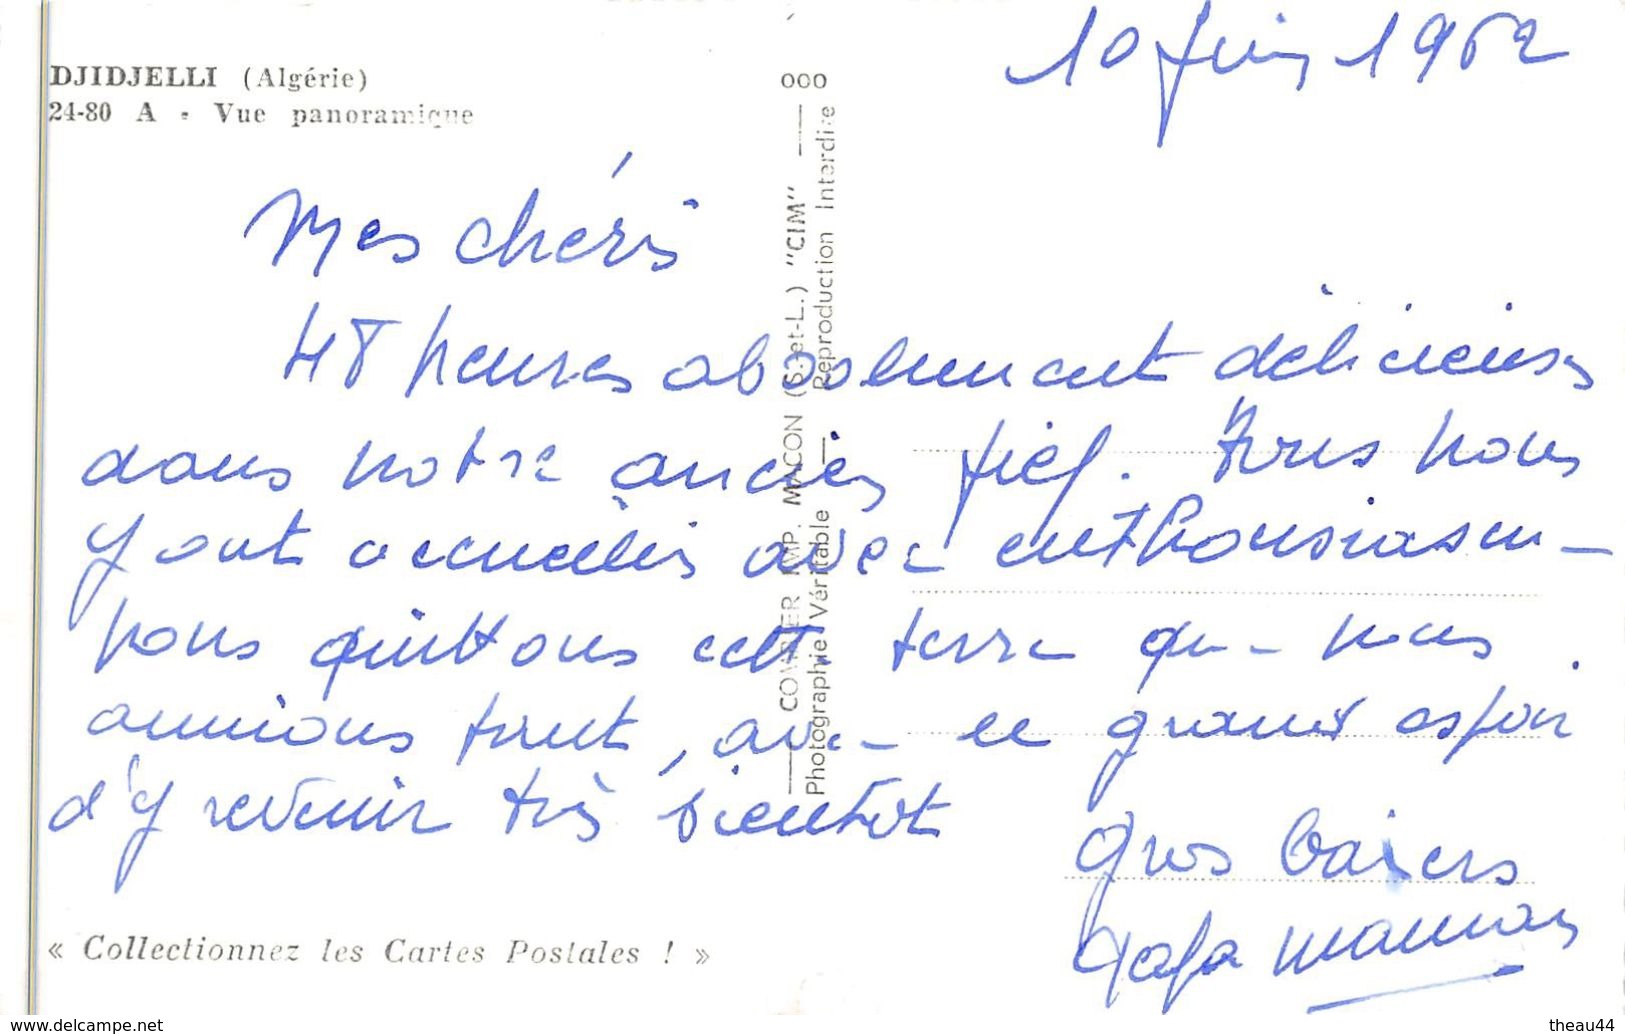 DJIDJELLI (Algérie)
24-80 A - Vue panoramique
10 Juin 1962
Mes chéris
48 heures absolument délicieuses
dans notre ancien fief. Tous nous
y ont accueillis avec enthousiasme -
nous quittons cette terre que nous
aimions tant, avec le grand espoir
d'y revenir très bientôt
Gros baisers
Papa maman
« Collectionnez les Cartes Postales ! »
000
COMBIER IMP. MACON (S.-et-L.) "CIM"
Photographie Véritable — Reproduction Interdite
www.delcampe.net
theau44